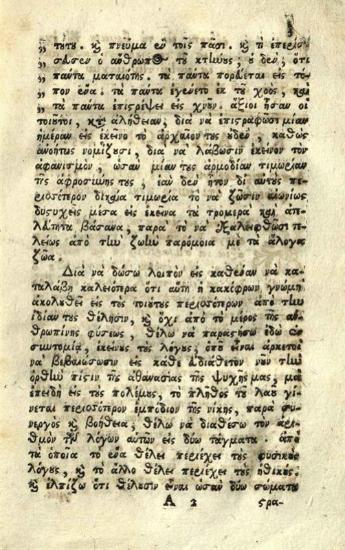 „ τȣ́τȣ. κỳ πνεῦμα ἐν τοῖς πᾶσι. κỳ τί ἐπερίσ-
„ σευσεν ὁ ἄνθρωπος τȣ͂ κτίωȣς, ȣ̓δέν, ὅτι
„ πάντα ματαιότης. τὰ πάντα πορεύεται εἰς τό-
„ πον ἕνα. τὰ πάντα ἐγένετο ἐκ τȣ͂ χοὸς, καὶ
„ τὰ πάντα ἐπιςρέψει εἰς χȣ͂ν. ἄξιοι ἦσαν οἱ
τοιȣ͂τοι, κατ' ἀλήθειαν, διὰ νὰ ἐπιςραφῶσι μίαν
ἡμέραν εἰς ἐκεῖνο τὸ ἀρχαῖον τῆς ȣ̓δέν, καθὼς
ἀνοήτως νομίζȣσι, διὰ νὰ λάβωσιν ἐκεῖνον τὸν
ἀφανισμὸν, ὡσὰν μίαν τῆς ἁρμοδίαν τιμωρίαν
τῆς ἀφροσιώης τȣς, ἐὰν δὲν ἦτον δι' αὐτȣ̀ς πε-
ρισσότερον δικαία τιμωρία τὸ νὰ ζῶσιν αἰωνίως
δυςυχεῖς μέσα εἰς ἐκεῖνα τὰ τρομερὰ καὶ ἀπα-
ράτητα βάσανα, παρὰ τὸ νὰ ἐξαλειφθῶσι
τελείως ἀπὸ τlὼ ζωlὼ παρόμοια μὲ τὰ ἄλογα
ζῶα.
Διὰ νὰ δώσω λοιπὸν εἰς καθέναν νὰ κα-
ταλάβῃ καλλιότερα ὅτι αὕτη ἡ κακόφρων γνώμη
ἀκολȣθεῖ εἰς τȣ̀ς τοιȣ́τȣς περισσότερον ἀπὸ τlὼ
ἰδίαν τῆς θέλησιν, κỳ ὄχι ἀπὸ τὸ μέρος τῆς ἀν-
θρωπίνης φύσεως, θέλω νὰ παραςήσω ἐδῶ ἐν
συντομίᾳ, ἐκείνȣς τȣ̀ς λόγȣς, ὁπȣ͂ εἶναι ἀρκετοὶ
νὰ βεβαιώσωσιν εἰς κάθε ἀδιάθετον νȣ͂ν τlὼ
ὀρθlὼ πίςιν τῆς ἀθανασίας τῆς ψυχῆς μας, μὰ
ἐπειδὴ εἰς τȣ̀ς πολέμȣς, τὸ πλῆθος τȣ͂ λαȣ͂ γί-
νεται περισσότερον ἐμπόδιον τῆς νίκης, παρὰ συ-
νεργὸς κỳ βοήθεια, θέλω νὰ διαθέσω τὸν ἀρι-
θμὸν τῶν λόγων αὐτῶν εἰς δύω τάγματα ἀπὸ
τὰ ὁποῖα τὸ ἕνα θέλει περιέχει τȣ̀ς φυσικȣ̀ς
λόγȣς, κỳ τὸ ἄλλο θέλει περιέχει τȣ̀ς ἠθικȣ́ς.
κỳ ἐλπίζω ὅτι θέλȣσιν εἶναι ὡσὰν δύω σώματα
A 2 ςρα-